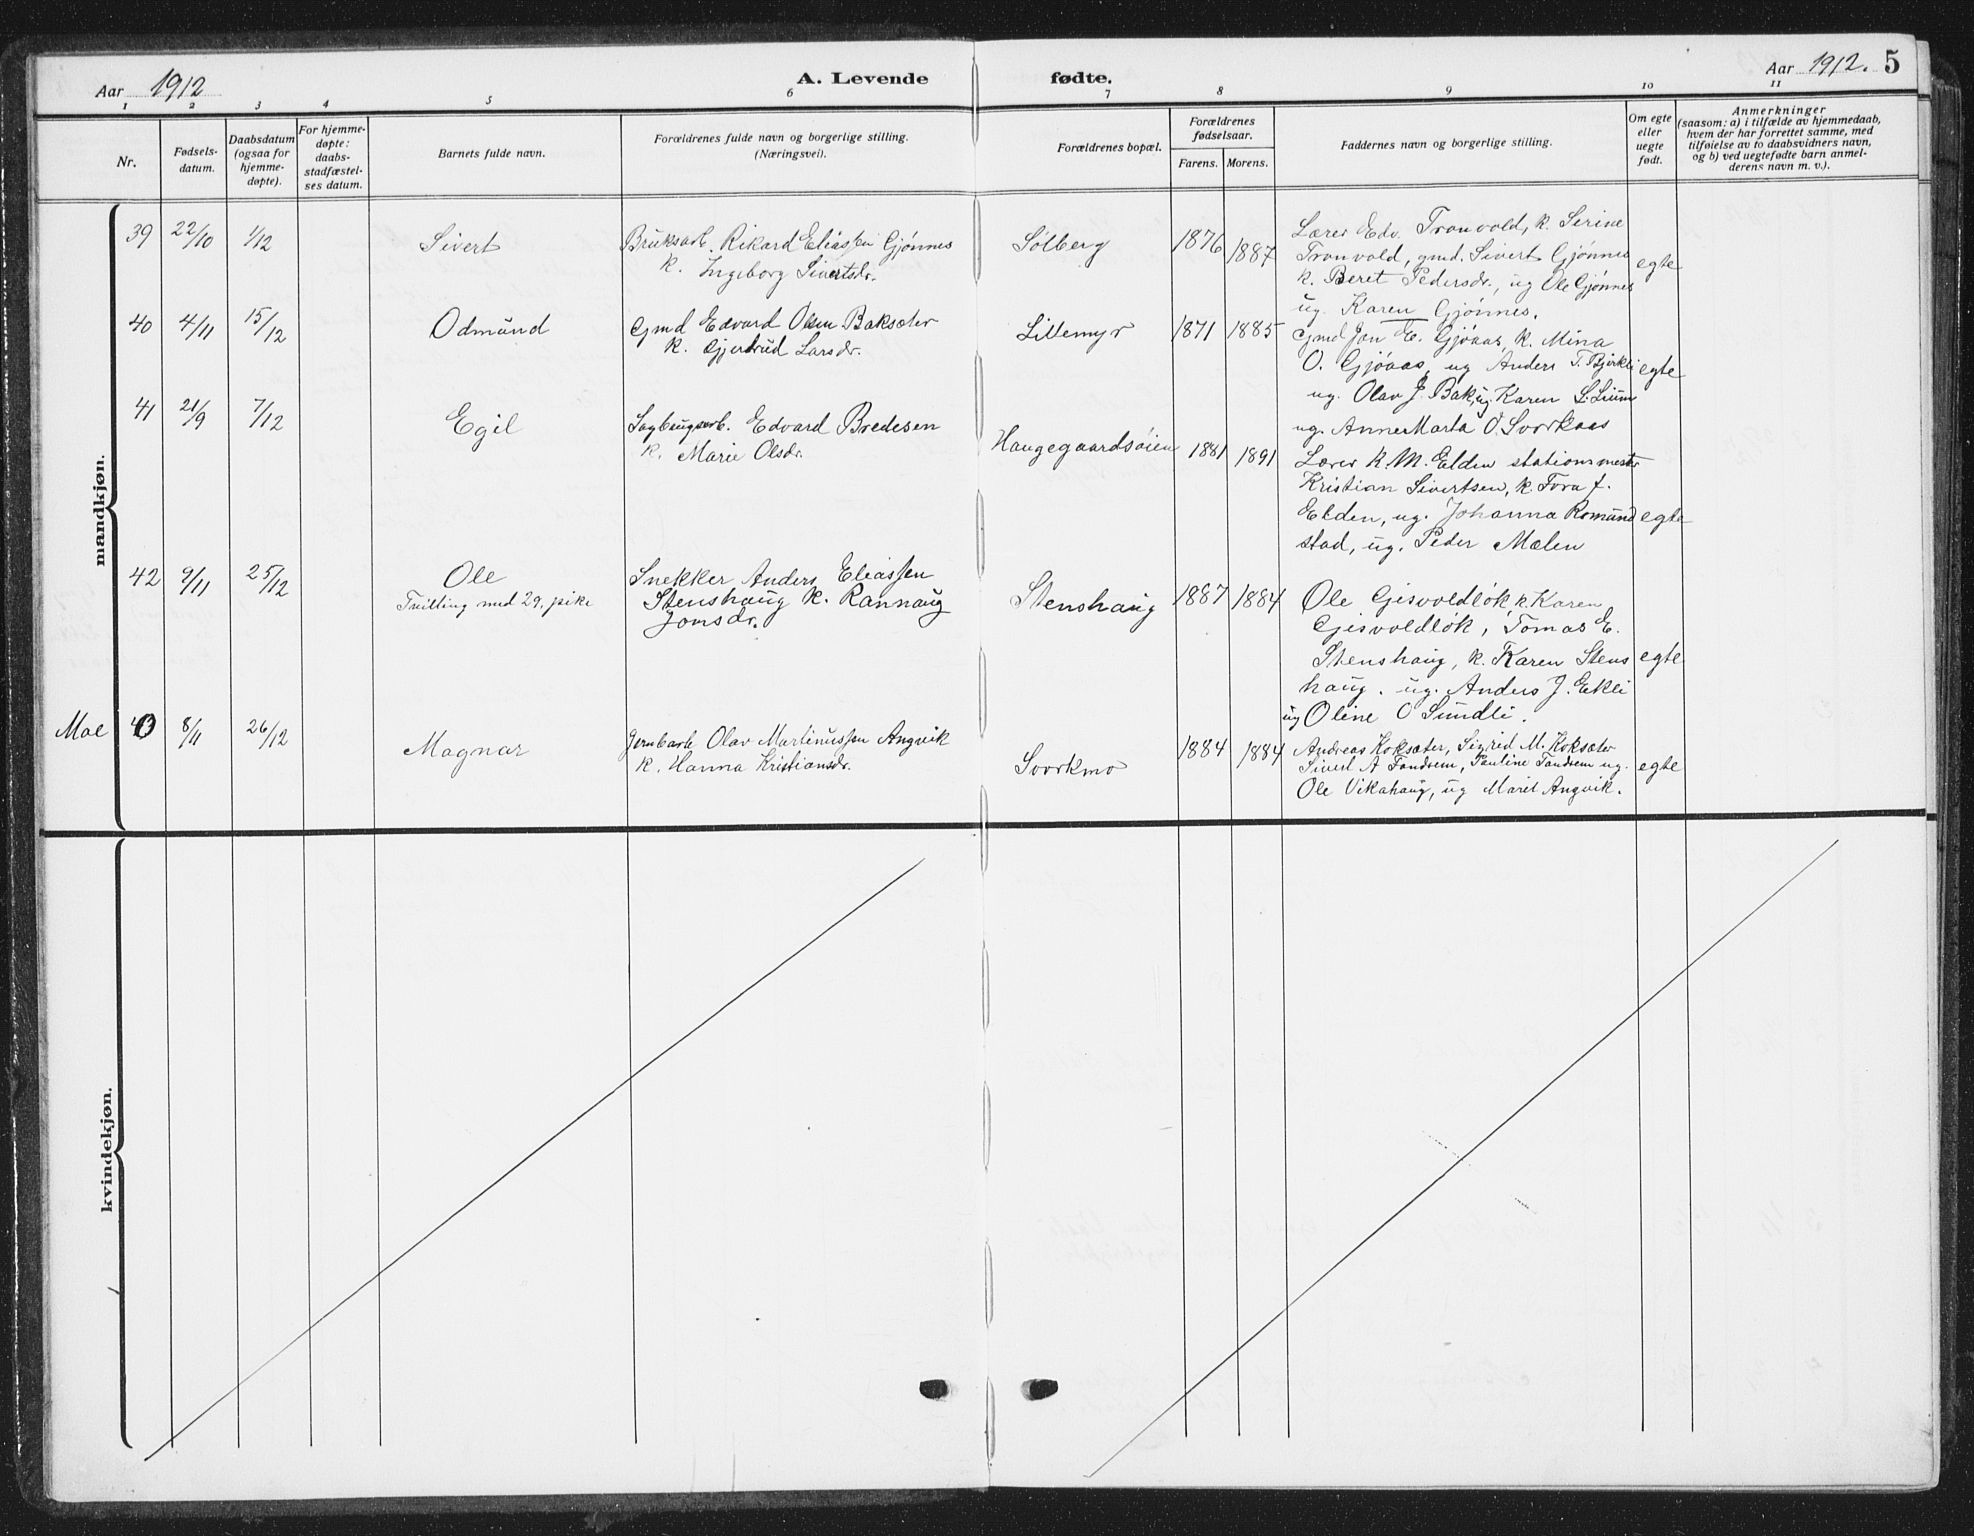 Aar 1912
A. Levende fødte.
Aar 1912. 5
1 2 3 4 5 6 7 8 9 10 11
Nr.
Fødsels-
datum.
Daabsdatum
(ogsaa for
hjemme-
døpte).
For hjemme-
døpte:
daabs-
stadfæstel-
ses datum.
Barnets fulde navn.
Forældrenes fulde navn og borgerlige stilling.
(Næringsvei).
Forældrenes bopæl.
Forældrenes
fødselsaar.
Farens. Morens.
Faddernes navn og borgerlige stilling.
Om egte
eller
uegte
født.
Anmerkninger
(saasom: a) i tilfælde av hjemmedaab,
hvem der har forrettet samme, med
tilføielse av to daabsvidners navn,
og b) ved uegtefødte barn anmel-
derens navn m. v.).
mandkjøn.
39 22/10 1/12 Sivert
Bruksarb. Rikard Eliassen Gjønnes
k. Ingeborg Sivertsdr.
Solberg 1876 1887
Lærer Edv. Tronvold, k. Serine
Tronvold, gmd. Sivert Gjønnes
k. Beret Pedersdr., ug Ole Gjønnes
ug. Karen Gjønnes.
egte
40 4/11 15/12 Odmund
Gmd Edvard Olsen Baksæter
k. Gjertrud Larsdr.
Lillemyr 1871 1885
Gmd Jon E. Gjøaas, k. Mina
O. Gjøaas, ug Anders T. Bjerkli
ug. Olav J. Bak, ug. Karen L. Lium
ug. Anne Marta O. Svorkaas
egte
41 21/9 7/12 Egil
Sagbrugsarb. Edvard Bredesen
k. Marie Olsdr.
Haugegaardsøien 1881 1891
Lærer K. M. Elden stationsmester
Kristian Sivertsen, k. Tora J.
Elden, ug. Johanna Romund
stad, ug. Peder Mælen
egte
42 9/11 25/12 Ole
Tvilling med 29. pike
Snekker Anders Eliassen
Stenshaug k. Rannaug
Jonsdr.
Stenshaug 1887 1884
Ole Gisvoldløk, k. Karen
Gisvoldløk, Tomas E.
Stenshaug, k. Karen Stens
haug. ug. Anders J. Ekli
ug Oline O Sundli.
egte
Moe 43 8/11 26/12 Magnar
Jernbarb Olav Martinussen Angvik
k. Hanna Kristiansdr.
Svorkmo 1884 1884
Andreas Koksæter, Sigrid M. Koksæter
Sivert A Tondsem, Pauline Tondsem ug.
Ole Vikahaug, ug Marit Angvik.
egte
kvindekjøn.